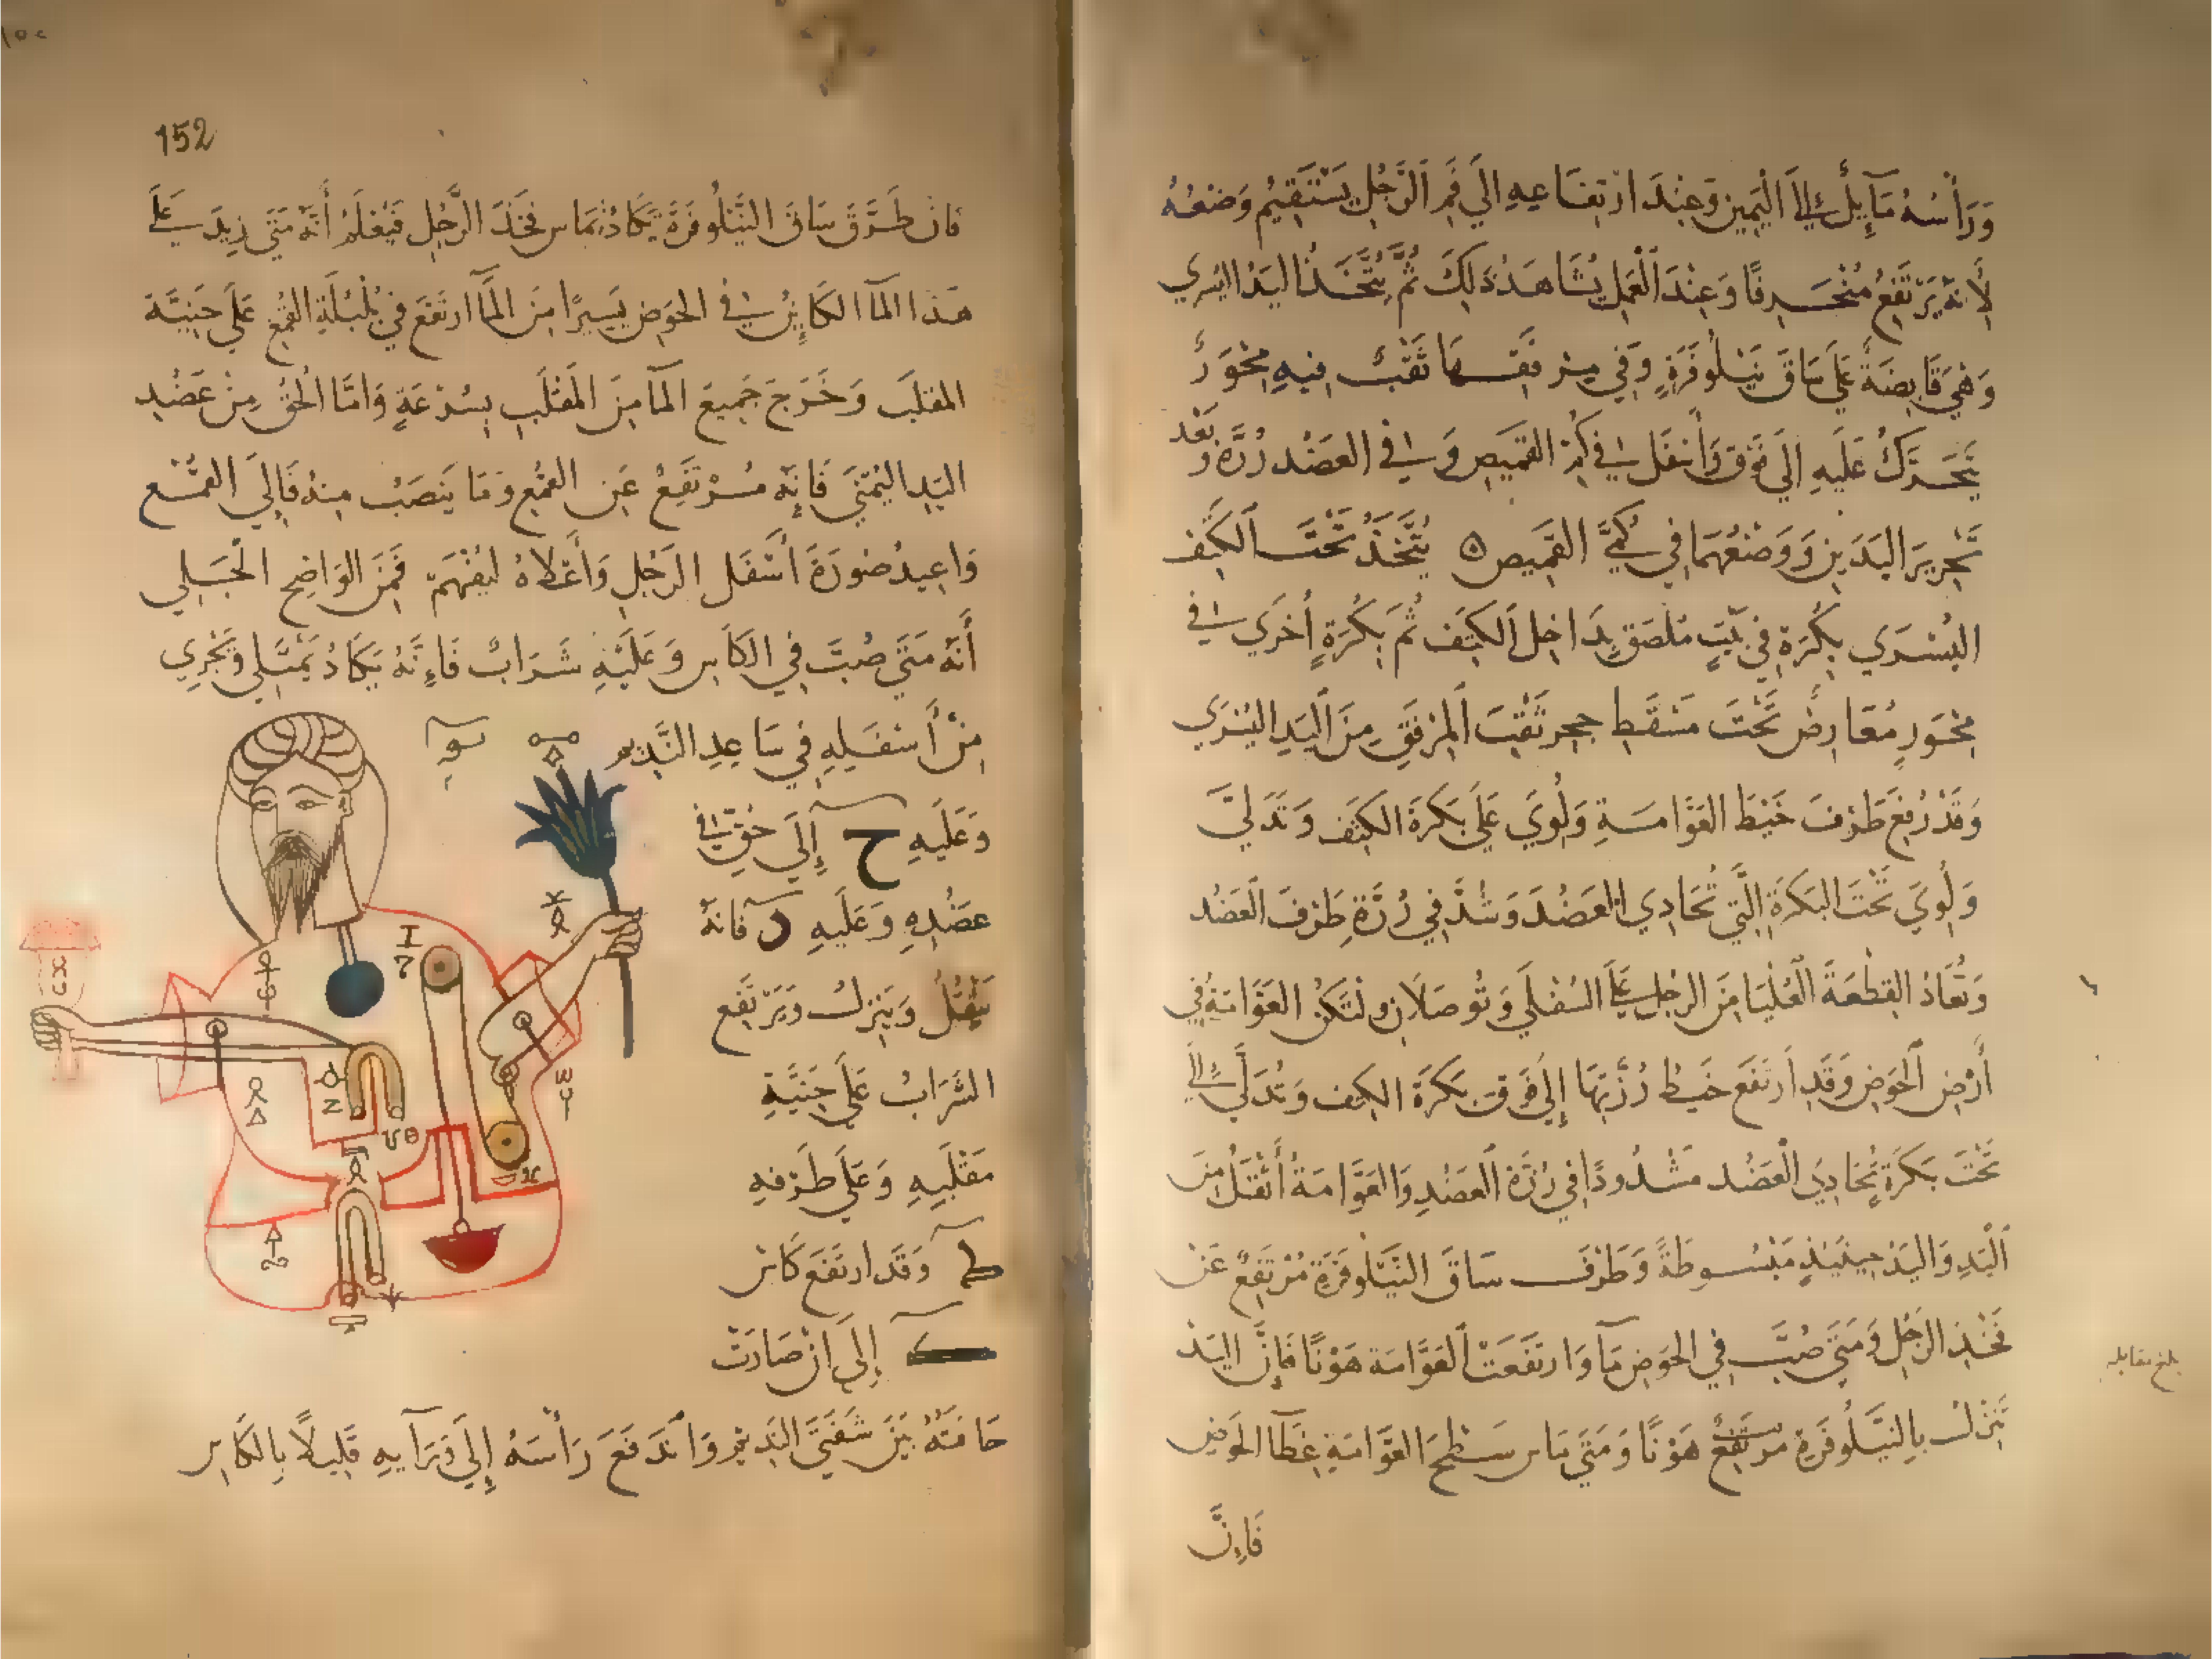 وَرَأْسُهُ مَآئِلٌ إِلَى الْيَمِينِ وَعِنْدَ ارْتِفَاعِهِ إِلَى فَمِ الرَّجُلِ يَسْتَقِيمُ وَضْعُهُ
لِأَنَّهُ يَرْتَفِعُ مُنْحَرِفًا وَعِنْدَ الْعَمَلِ يُشَاهَدُ ذَلِكَ ثُمَّ يُتَّخَذُ الْيَدُ الْيُسْرَى
وَهِيَ قَابِضَةٌ عَلَى سَاقِ نَيْلُوفَرَةٍ وَفِي مِرْفَقِهَا ثَقْبٌ فِيهِ مِحْوَرٌ
يَتَحَرَّكُ عَلَيْهِ إِلَى فَوْقَ وَأَسْفَلَ فِي كُمِّ الْقَمِيصِ وَفِي الْعَضُدِ رُزَّةٌ وَبَعْدَ
تَحْرِيرِ الْيَدَيْنِ وَوَضْعِهِمَا فِي كُمَّيِ الْقَمِيصِ ۞ يُتَّخَذُ تَحْتَ الْكَتِفِ
الْيُسْرَى بَكَرَةٌ فِي بَيْتٍ مُلْصَقٍ بِدَاخِلِ الْكَتِفِ ثُمَّ بَكَرَةٌ أُخْرَى فِي
مِحْوَرٍ مُعَارِضٍ تَحْتَ مَسْقَطِ حجر ثَقْبِ الْمِرْفَقِ مِنَ الْيَدِ الْيُسْرَى
وَقَدْ رُفِعَ طَرَفُ خَيْطِ الْعَوَّامَةِ وَلُوِيَ عَلَى بَكَرَةِ الْكَتِفِ وَتَدَلَّى
وَلُوِيَ تَحْتَ الْبَكَرَةِ الَّتِي تُحَاذِي الْعَضُدَ وَشُدَّ فِي رُزَّةِ طَرَفِ الْعَضُدِ
وَتُعَادُ الْقِطْعَةُ الْعُلْيَا مِنَ الرَّجُلِ عَلَى السُّفْلَى وَتُوصَلَانِ وَلْتَكُنِ الْعَوَّامَةُ فِي
أَرْضِ الْحَوْضِ وَقَدِ ارْتَفَعَ خَيْطُ رُزَّتِهَا إِلَى فَوْقَ بَكَرَةِ الْكَتِفِ وَتَدَلَّى إِلَى
تَحْتَ بَكَرَةٍ تُحَاذِي الْعَضُدَ مَشْدُودًا فِي رُزَّةِ الْعَضُدِ وَالْعَوَّامَةُ أَثْقَلُ مِنَ
الْيَدِ وَالْيَدُ حِينَئِذٍ مَبْسُوطَةٌ وَطَرَفُ سَاقِ النَّيْلُوفَرَةِ مُرْتَفِعٌ عَنْ
فَخْذِ الرَّجُلِ وَمَتَى صُبَّ فِي الْحَوْضِ مَآءٌ وَارْتَفَعَتِ الْعَوَّامَةُ هَوْنًا فَإِنَّ الْيَدَ
تَنْزِلُ بِالنَّيْلُوفَرَةِ هَوْنًا وَمَتَى مَاسَّ سَطْحُ الْعَوَّامَةِ غِطَآءَ الْحَوْضِ
فَإِنَّ
بلغ مقابله
152
فَإِنَّ طَرَفَ سَاقِ النَّيْلُوفَرَةِ يَكَادُ يُمَاسُّ فَخْذَ الرَّجُلِ فَيُعْلَمُ أَنَّهُ مَتَى زِيدَ عَلَى
هَذَا الْمَآءِ الْكَائِنِ فِي الْحَوْضِ يَسِيرًا مِنَ الْمَآءِ ارْتَفَعَ فِي بُلْبُلَةِ الْقِمْعِ عَلَى حَنِيَّةِ
الْمَقْلَبِ وَخَرَجَ جَمِيعُ الْمَآءِ مِنَ الْمَقْلَبِ بِسُرْعَةٍ وَأَمَّا الْحُقُّ مِنْ عَضُدِ
الْيَدِ الْيُمْنَى فَإِنَّهُ مُرْتَفِعٌ عَنِ الْقِمْعِ وَمَا يَنْصَبُّ مِنْهُ فَإِلَى الْقِمْعِ
وَأُعِيدُ صُورَةَ أَسْفَلِ الرَّجُلِ وَأَعْلَاهُ لِيُفْهَمَ فَمِنَ الْوَاضِحِ الْجَلِي
أَنَّهُ مَتَى صُبَّ فِي الْكَأْسِ وَعَلَيْهِ شَرَابٌ فَإِنَّهُ يَكَادُ يَمْتَلِي وَيَجْرِي
مِنْ أَسْفَلِهِ فِي سَاعِدِ النَّدِيمِ
وَعَلَيْهِ ح إِلَى حُقٍّ فِي
عَضُدِهِ وَعَلَيْهِ فَإِنَّهُ
يَثْقُلُ وَيَنْزِلُ وَيَرْتَفِعُ
الشَّرَابُ عَلَى حَنِيَّةِ
مَقْلَبِهِ وَعَلَى طَرَفِهِ
ط وَقَدِ ارْتَفَعَ كَأْسُ
إِلَى أَنْ صَارَتْ
حَافَّتُهُ بَيْنَ شَفَتَيِ النَّدِيمِ وَانْدَفَعَ رَأْسُهُ إِلَى وَرَآئِهِ قَلِيلًا بِالْكَأْسِ